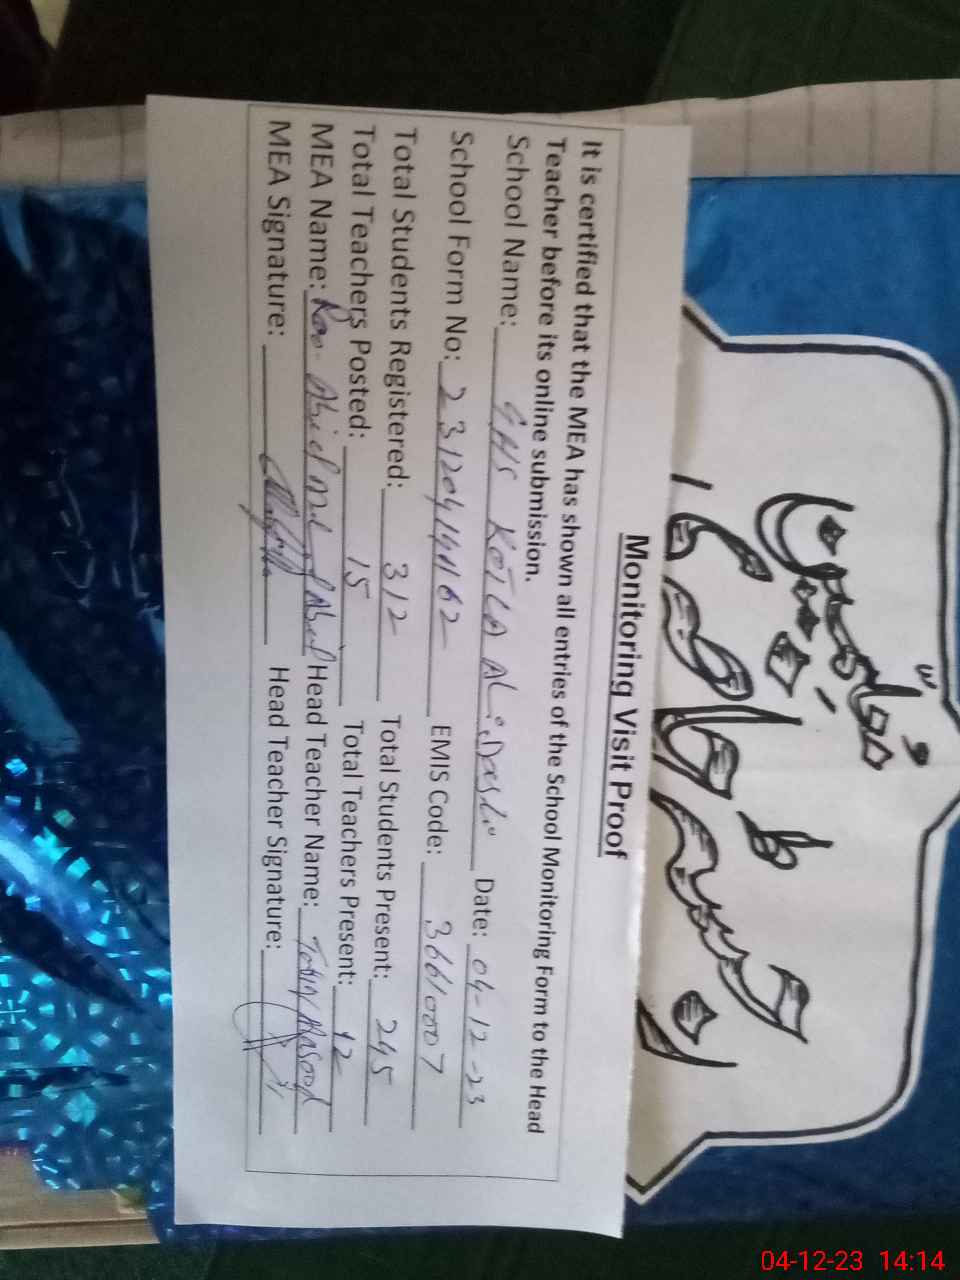 Monitoring Visit Proof
It is certified that the MEA has shown all entries of the School Monitoring Form to the Head
Teacher before its online submission.
School Name: GHS KOTLA Date: 04-12-23
School Form No: 23120414162 EMIS Code: 36610007
Total Students Registered: 312 Total Students Present: 245
Total Teachers Posted: 15 Total Teachers Present: 12
MEA Name: Rao Abid Head Teacher Name: Masood
MEA Signature: Head Teacher Signature:
04-12-23 14:14